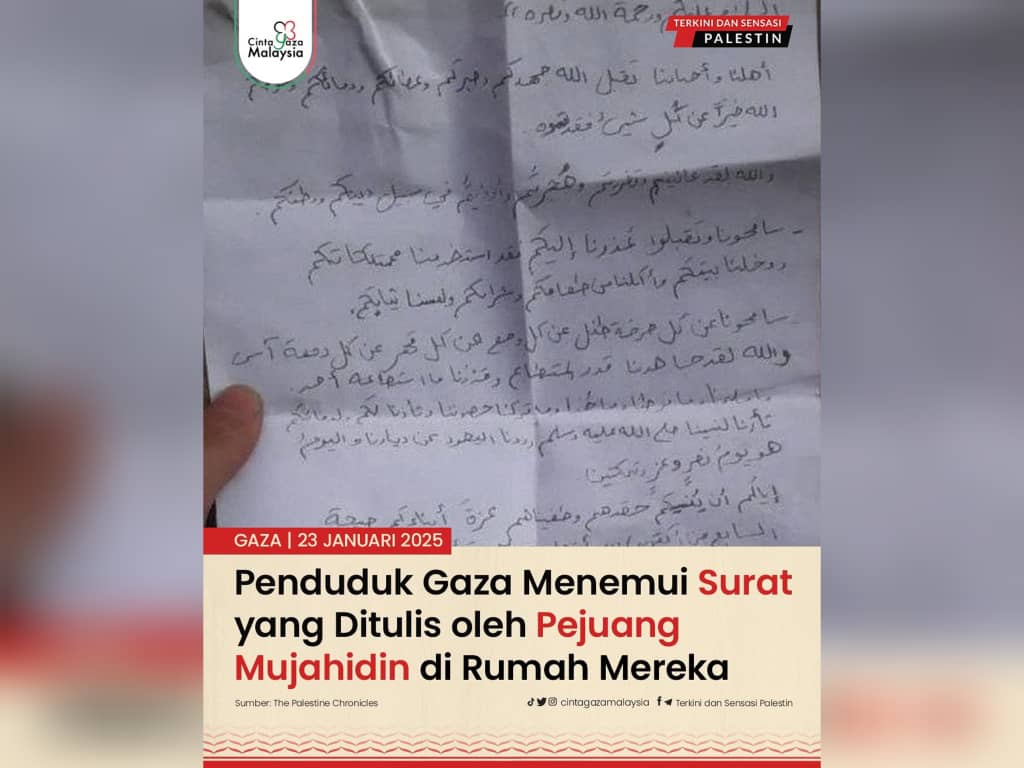 Cinta Gaza
Malaysia
TERKINI DAN SENSASI
PALESTIN
السلام عليكم ورحمة الله ونصره
أهلنا وأحبابنا تقبل الله جهدكم وصبركم وعطائكم ودمائكم
الله خيرًا عن كُلِ شيئ فقدتموه.
والله لقد عانيتم وهُجرتم وأوذيتم في سبيل دينكم ووطنكم.
- سامحونا وتقبلوا عُذرنا إليكم فقد استخدمنا ممتلكاتكم
ودخلنا بيتكم وأكلنا من طعامكم وشرابكم ولبسنا ثيابكم.
- سامحونا عن كل صرخة طفل عن كل وجع عن كل قهر عن كل دمعة أسى
والله لقد جاهدنا قدر المستطاع وقدمنا ما استطاعه أحد.
ثأرنا لنبينا صلى الله عليه وسلم رددنا اليهود عن ديارنا واليوم
هو يومُ نصرٍ وعزٍ وتمكين
إياكم أن يُنسيكم حقدهم وطغيانهم عزةَ أبنائكم صبيحة
السابع من أكتوبر
GAZA | 23 JANUARI 2025
Penduduk Gaza Menemui Surat
yang Ditulis oleh Pejuang
Mujahidin di Rumah Mereka
Sumber: The Palestine Chronicles
cintagazamalaysia
Terkini dan Sensasi Palestin